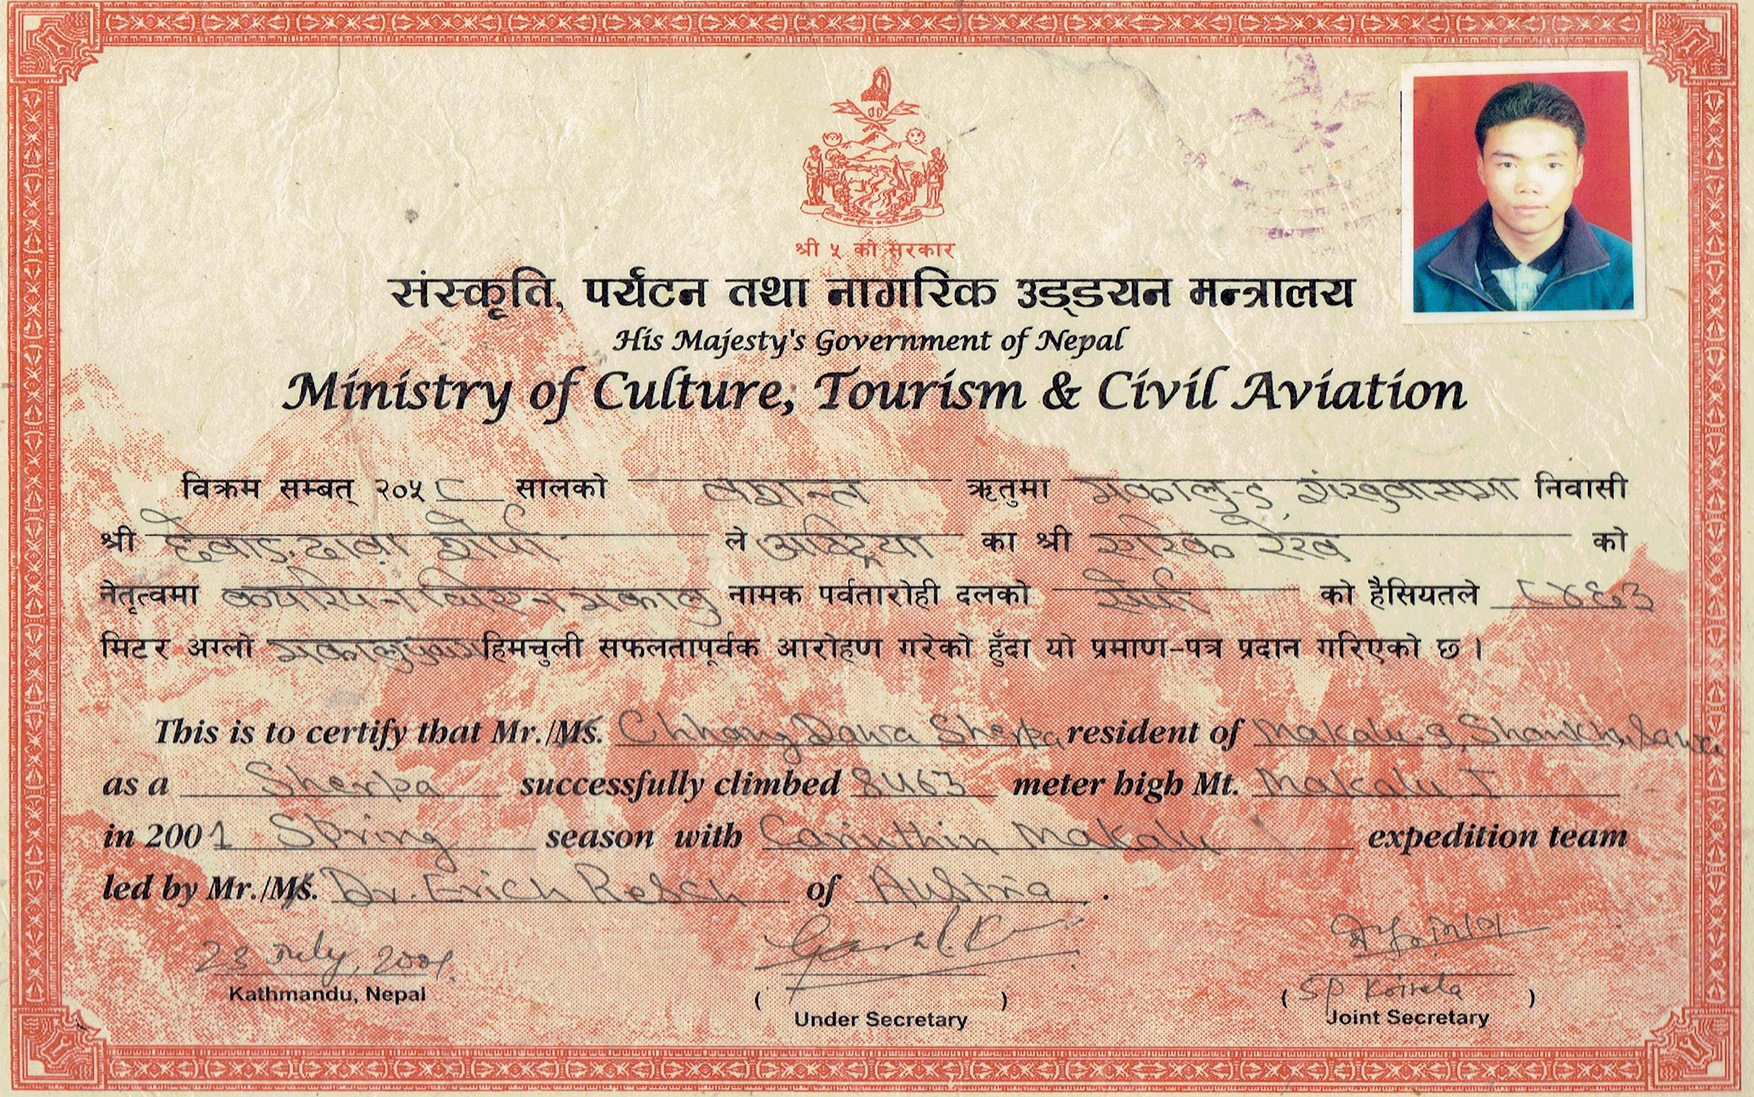 श्री ५ को सरकार
संस्कृति, पर्यटन तथा नागरिक उड्डयन मन्त्रालय
His Majesty's Government of Nepal
Ministry of Culture, Tourism & Civil Aviation
विक्रम सम्बत् २०५८ सालको बसन्त ऋतुमा मकालु-९, शंखुवासभा निवासी
श्री छेवाङ दावा शेर्पा ले अष्ट्रिया का श्री को
नेतृत्वमा मकालु नामक पर्वतारोही दलको शेर्पा को हैसियतले ८४६३
मिटर अग्लो हिमचुली सफलतापूर्वक आरोहण गरेको हुँदा यो प्रमाण-पत्र प्रदान गरिएको छ ।
This is to certify that Mr./Ms. Chhang Dawa Sherpa resident of Makalu-9, Shankhusawa
as a Sherpa successfully climbed 8463 meter high Mt. Makalu I
in 2001 Spring season with Carinthin Makalu expedition team
led by Mr./Ms. Dr. Erich Resch of Austria .
23 July, 2001.
Kathmandu, Nepal
( )
Under Secretary
( S P Koirala )
Joint Secretary